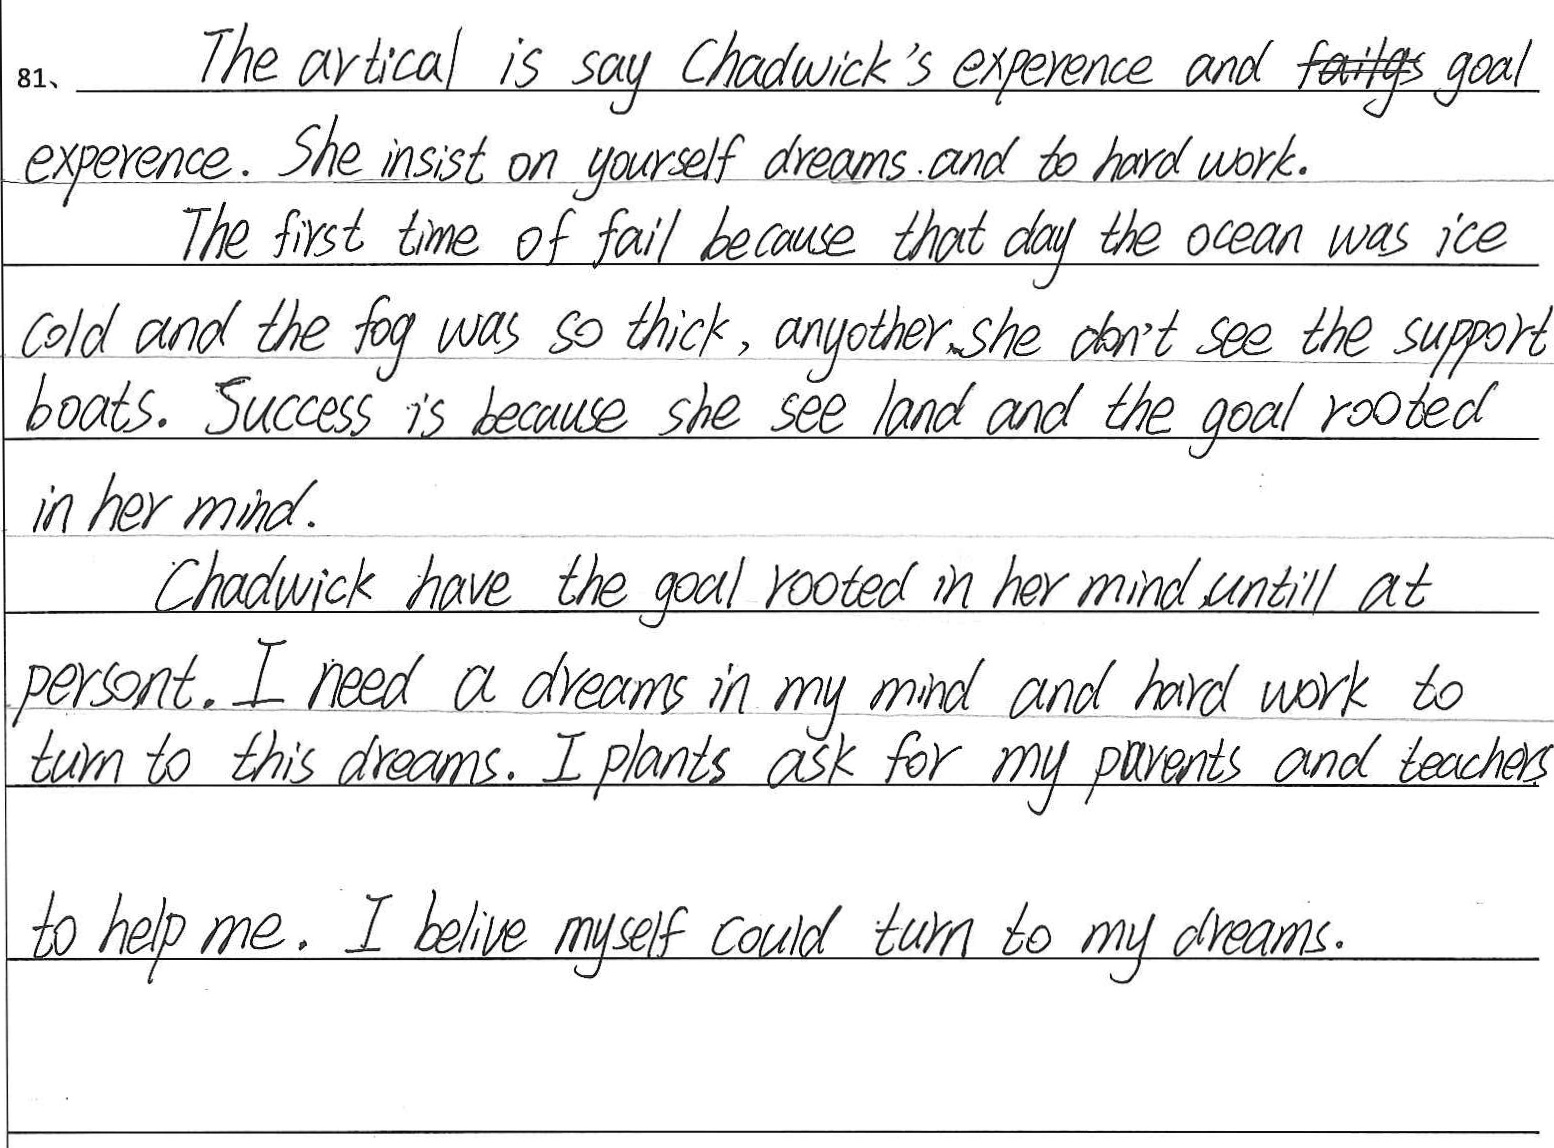 81、 The artical is say Chadwick's experence and goal
experence. She insist on yourself dreams.and to hard work.
The first time of fail because that day the ocean was ice
cold and the fog was so thick, anyother.she don't see the support
boats. Success is because she see land and the goal rooted
in her mind.
Chadwick have the goal rooted in her mind,untill at
persont. I need a dreams in my mind and hard work to
turn to this dreams. I plants ask for my parents and teachers
to help me. I belive myself could turn to my dreams.